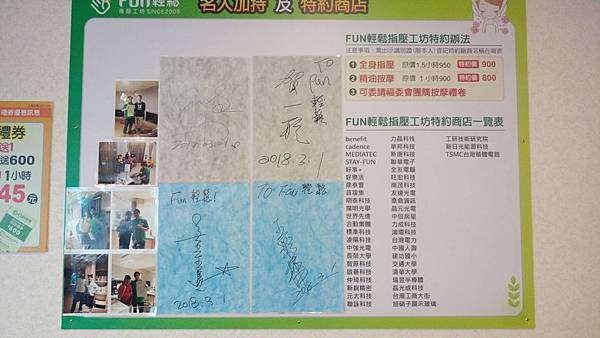 FUN輕鬆
指壓工坊SINCE2009
名人加持 及 特約商店
FUN輕鬆指壓工坊特約辦法
1 全身指壓 原價1.5小時950 特約價 900
2 精油按摩 原價 1 小時900 特約價 800
3 可委請福委會團購按摩禮卷
FUN輕鬆指壓工坊特約商店一覽表
benefit 力晶科技 工研技術研究院
cadence 華邦科技 新日光能源科技
MEDIATEC 新唐科技 TSMC台灣積體電路
STAY-FUN 聯華電子
好事+ 全友電腦
好樂活 旺宏科技
鼎泰豐 南茂科技
首羅集 友達光電
明泰科技 鼎鼎資訊
揚明光學 晶元光電
世界先進 中信房屋
合勤集團 力成科技
標準科技 鴻璟科技
凌陽科技 台灣電力
中強光電 中國人壽
長榮大學 建功國小
智原科技 交通大學
啟碁科技 清華大學
仲琦科技 瑞昱半導體
新銳精密 晶光成科技
元太科技 台灣工商大街
聯詠科技 旭硝子顯示玻璃
TO Fun 輕鬆
2018.3.1
Fun 輕鬆!
2018.3.1
TO Fun 輕鬆
2018.3.1
禮券優惠訊息
禮券
送1
送600
1小時
45元